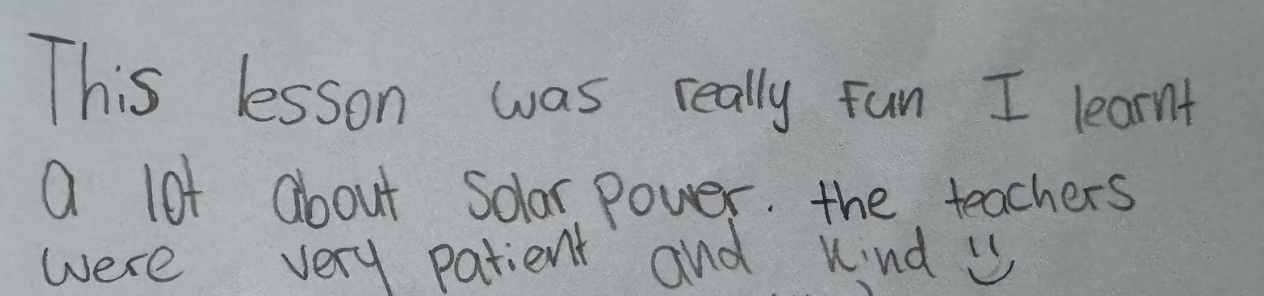 This lesson was really fun I learnt
a lot about Solar Power. the teachers
were very patient and kind